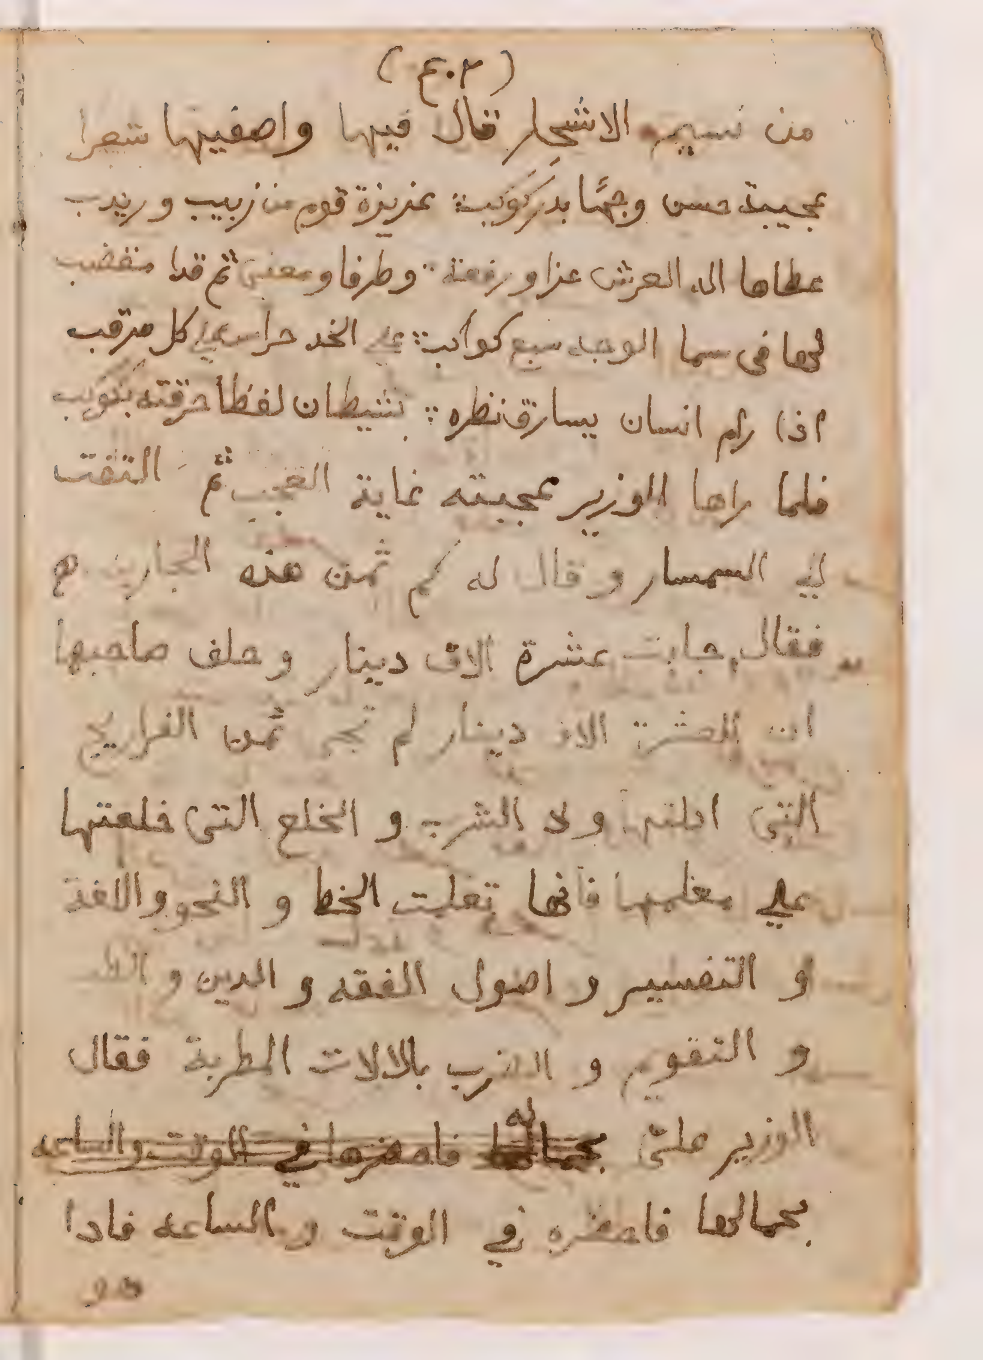 (٤٠٢)
من نسيم الاشجار قال فيها واصفيها شعرا
عجيبة حسن وجهها بدر كوكب ∴ عزيزة قوم من زبيب وربرب
عطاها اله العرش عزا ورفعة ∴ وظرفا ومعنى ثم قدا منقضب
لها في سما الوجه سبع كواكب ∴ علي الخد حراس علي كل مرقب
اذا رام انسان يسارق نظره ∴ بشيطان لفظا حرقته بكوكب
فلما راها الوزير عجبته غاية العجب ثم التفت
الي السمسار وقال له كم ثمن هذه الجارية
فقال جابت عشرة الاف دينار و حلف صاحبها
ان العشرة الاف دينار لم تجي ثمن الفراريج
التي اكلتها و لا الشرب و الخلع التي خلعتها
علي معلمها فانها تعلمت الخط و النحو و اللغة
و التفسير و اصول الفقه و الدين و الطب
و التقويم و الضرب بالالات المطربة فقال
الوزير علىّ به بجمالها فاحضرها في الوقت والساعه
بجمالها فاحضره في الوقت و الساعه فادا
هو